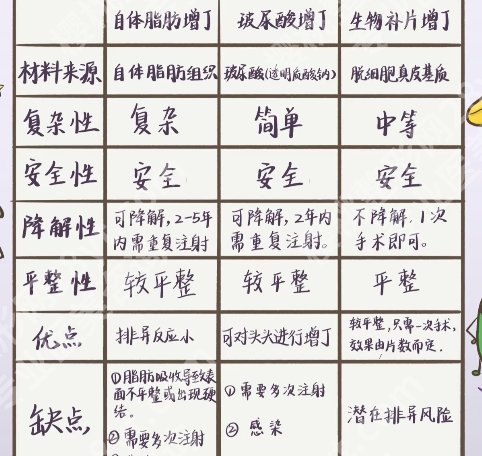 自体脂肪增丁 玻尿酸增丁 生物补片增丁
材料来源 自体脂肪组织 玻尿酸(透明质酸钠) 脱细胞真皮基质
复杂性 复杂 简单 中等
安全性 安全 安全 安全
降解性 可降解,2-5年 可降解,2年内 不降解,1次
内需重复注射 需重复注射。 手术即可。
平整性 较平整 较平整 平整
优点 排异反应小 可对头头进行增丁 较平整,只需一次手术,
效果由片数而定.
缺点 ①脂肪吸收导致表
面不平整或出现硬
结。
②需要多次注射
①需要多次注射
②感染
潜在排异风险